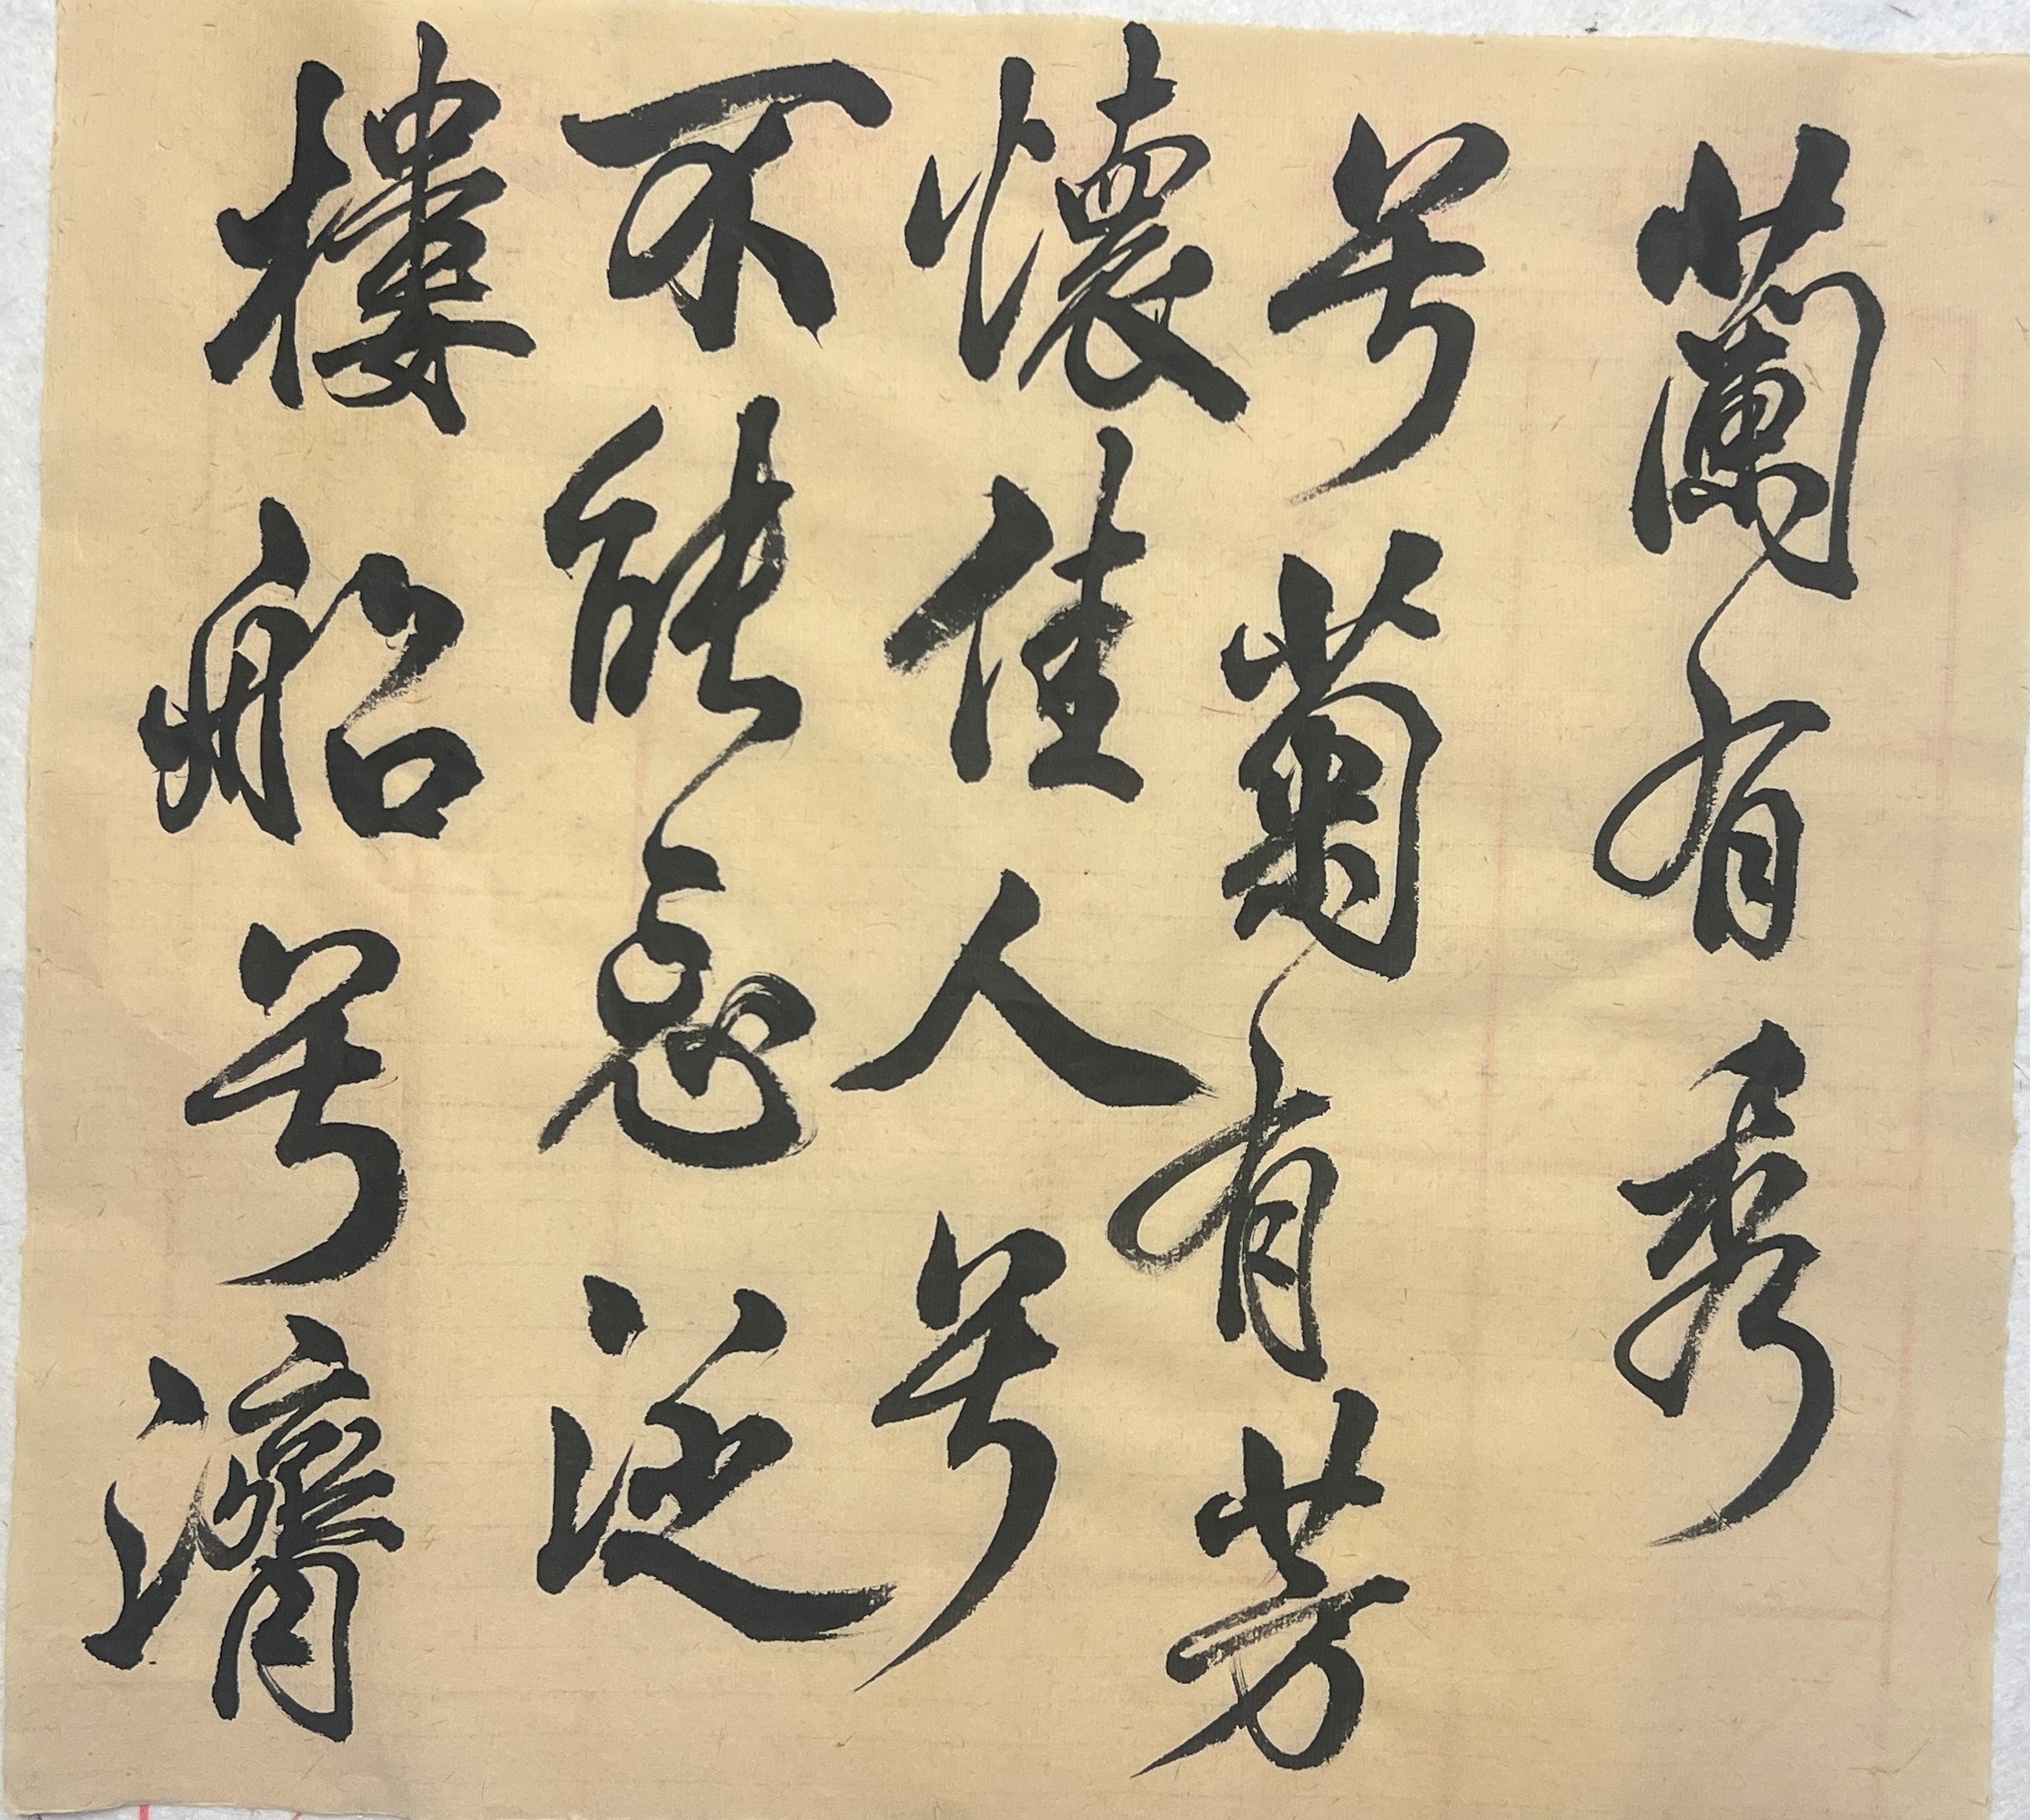 蘭有秀
兮菊有芳
懷佳人兮
不能忘泛
樓船兮濟